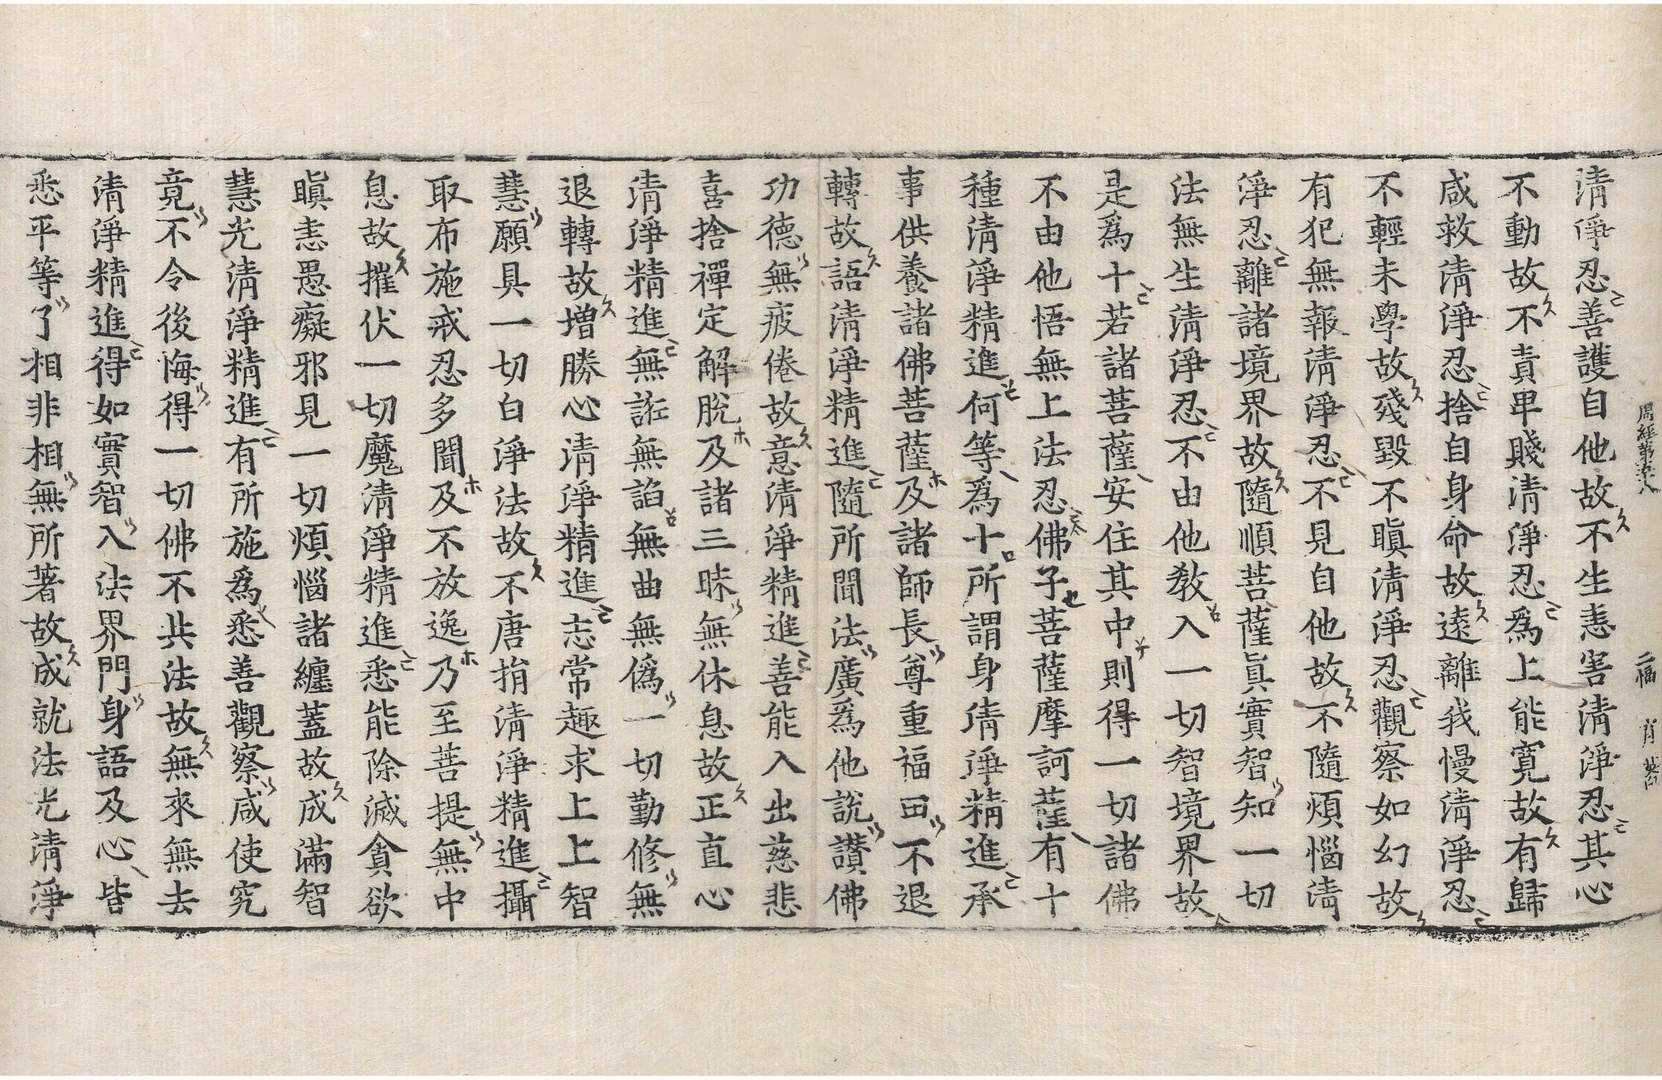 周經第五十八 二幅
清淨忍善護自他故不生恚害清淨忍其心
不動故不責卑賤清淨忍爲上能寬故有歸
咸救清淨忍捨自身命故遠離我慢清淨忍
不輕未學故殘毀不瞋清淨忍觀察如幻故
有犯無報清淨忍不見自他故不隨煩惱清
淨忍離諸境界故隨順菩薩眞實智知一切
法無生清淨忍不由他教入一切智境界故
是爲十若諸菩薩安住其中則得一切諸佛
不由他悟無上法忍佛子菩薩摩訶薩有十
種清淨精進何等爲十所謂身清淨精進承
事供養諸佛菩薩及諸師長尊重福田不退
轉故語清淨精進隨所聞法廣爲他說讚佛
功德無疲倦故意清淨精進善能入出慈悲
喜捨禪定解脫及諸三昧無休息故正直心
清淨精進無誑無諂無曲無僞一切勤修無
退轉故增勝心清淨精進志常趣求上上智
慧願具一切白淨法故不唐捐清淨精進攝
取布施戒忍多聞及不放逸乃至菩提無中
息故摧伏一切魔清淨精進悉能除滅貪欲
瞋恚愚癡邪見一切煩惱諸纏蓋故成滿智
慧光清淨精進有所施爲悉善觀察咸使究
竟不令後悔得一切佛不共法故無來無去
清淨精進得如實智入法界門身語及心皆
悉平等了相非相無所著故成就法光清淨